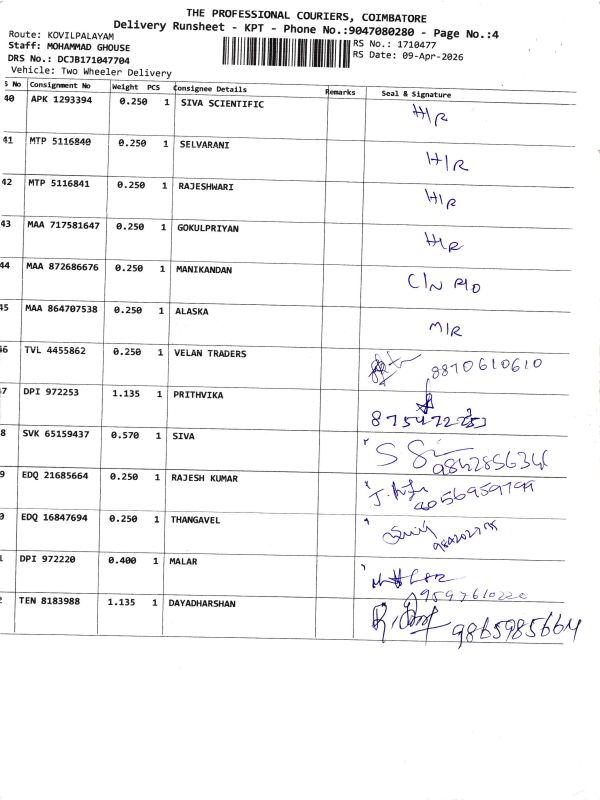 THE PROFESSIONAL COURIERS, COIMBATORE
Delivery Runsheet - KPT - Phone No.:9047080280 - Page No.:4
Route: KOVILPALAYAM
Staff: MOHAMMAD GHOUSE RS No.: 1710477
DRS No.: DCJB171047704 RS Date: 09-Apr-2026
Vehicle: Two Wheeler Delivery
S No Consignment No Weight PCS Consignee Details Remarks Seal & Signature
40 APK 1293394 0.250 1 SIVA SCIENTIFIC H/R
41 MTP 5116840 0.250 1 SELVARANI H/R
42 MTP 5116841 0.250 1 RAJESHWARI H/R
43 MAA 717581647 0.250 1 GOKULPRIYAN H/R
44 MAA 872686676 0.250 1 MANIKANDAN C/N
45 MAA 864707538 0.250 1 ALASKA M/R
46 TVL 4455862 0.250 1 VELAN TRADERS 8870610610
7 DPI 972253 1.135 1 PRITHVIKA
8 SVK 65159437 0.570 1 SIVA
9 EDQ 21685664 0.250 1 RAJESH KUMAR
0 EDQ 16847694 0.250 1 THANGAVEL
1 DPI 972220 0.400 1 MALAR
9597610220
2 TEN 8183988 1.135 1 DAYADHARSHAN
9865985664